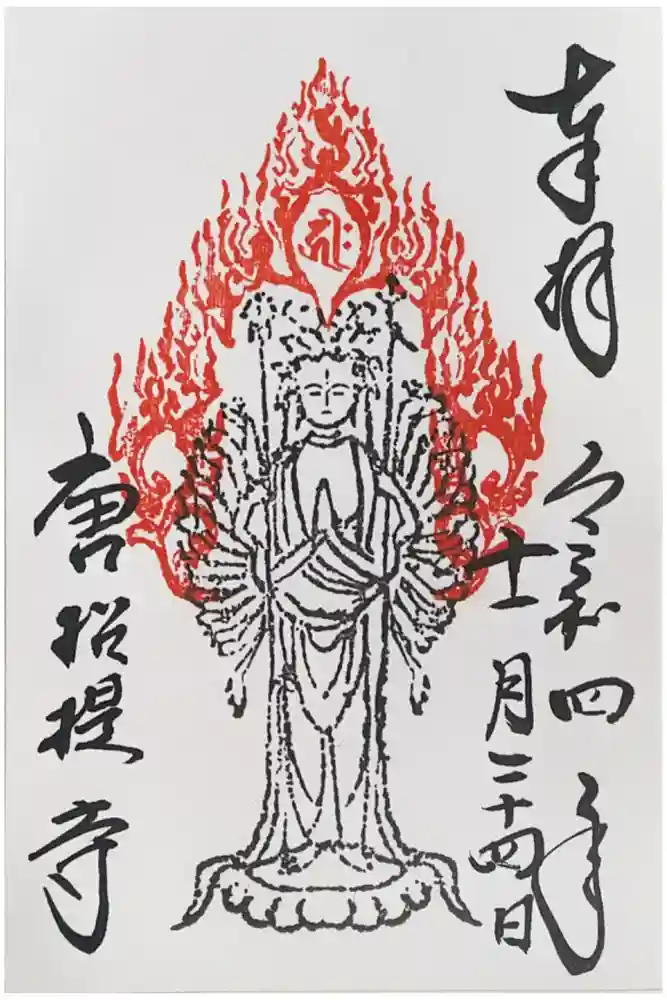 奉拝
令和四年
十一月二十四日
𑖮𑖿𑖨𑖱𑖾
唐招提寺